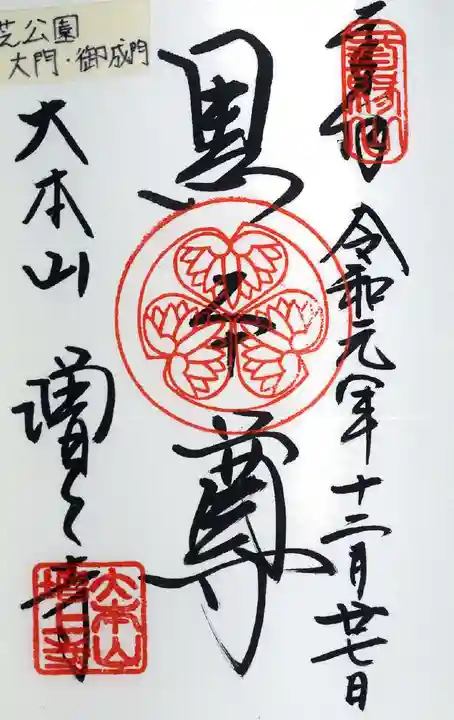 芝公園
大門・御成門
奉拝
令和元年十二月廿七日
黒本尊
大本山 増上寺
大本山
増上寺